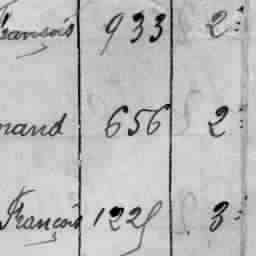 François 933 2:
mand 656 2:
François 1225 3: